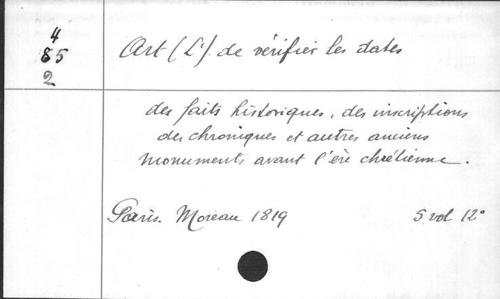 4
85
2
Art (L'). de vérifier les dates
des faits historiques, des inscriptions
des chroniques et autres anciens
monuments avant l'ère chrétienne.
Paris. Moreau 1819 5 vol 12°